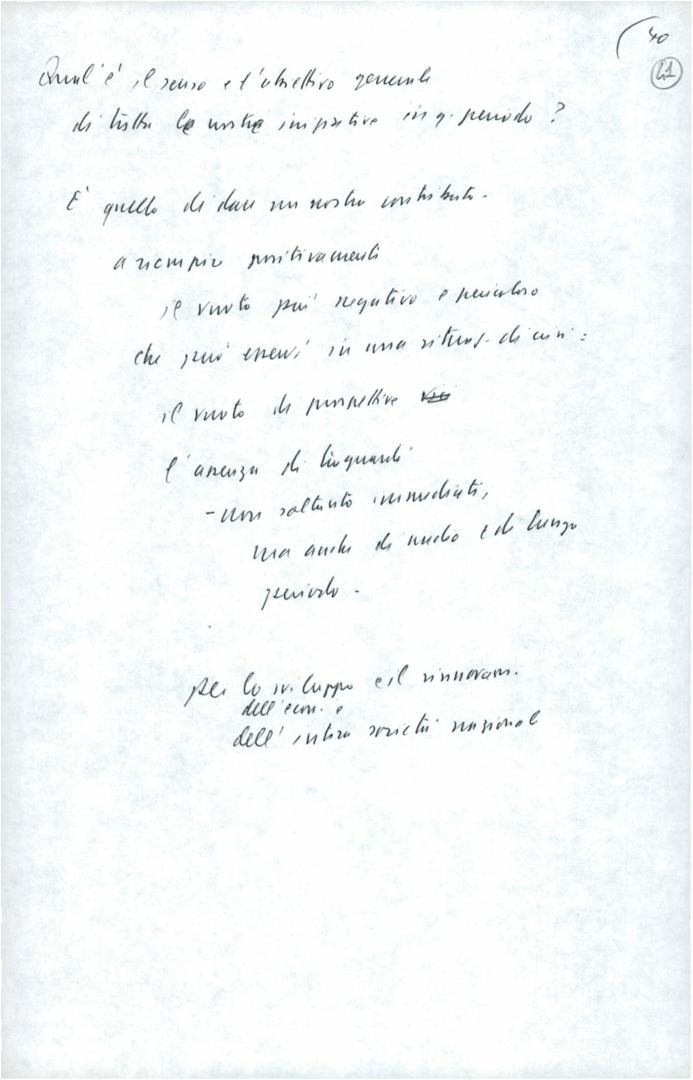 40
41
Qual'è il senso e l'obiettivo generale
di tutte le nostre iniziative in q. periodo?
E' quello di dare un nostro contributo.
a riempire positivamente
il vuoto più negativo e pericoloso
che può esservi in una situaz. di crisi:
il vuoto di prospettive
l'assenza di traguardi
- non soltanto immediati,
ma anche di medio e di lungo
periodo.
per lo sviluppo e il rinnovam.
dell'econ. e
dell'intera società nazionale